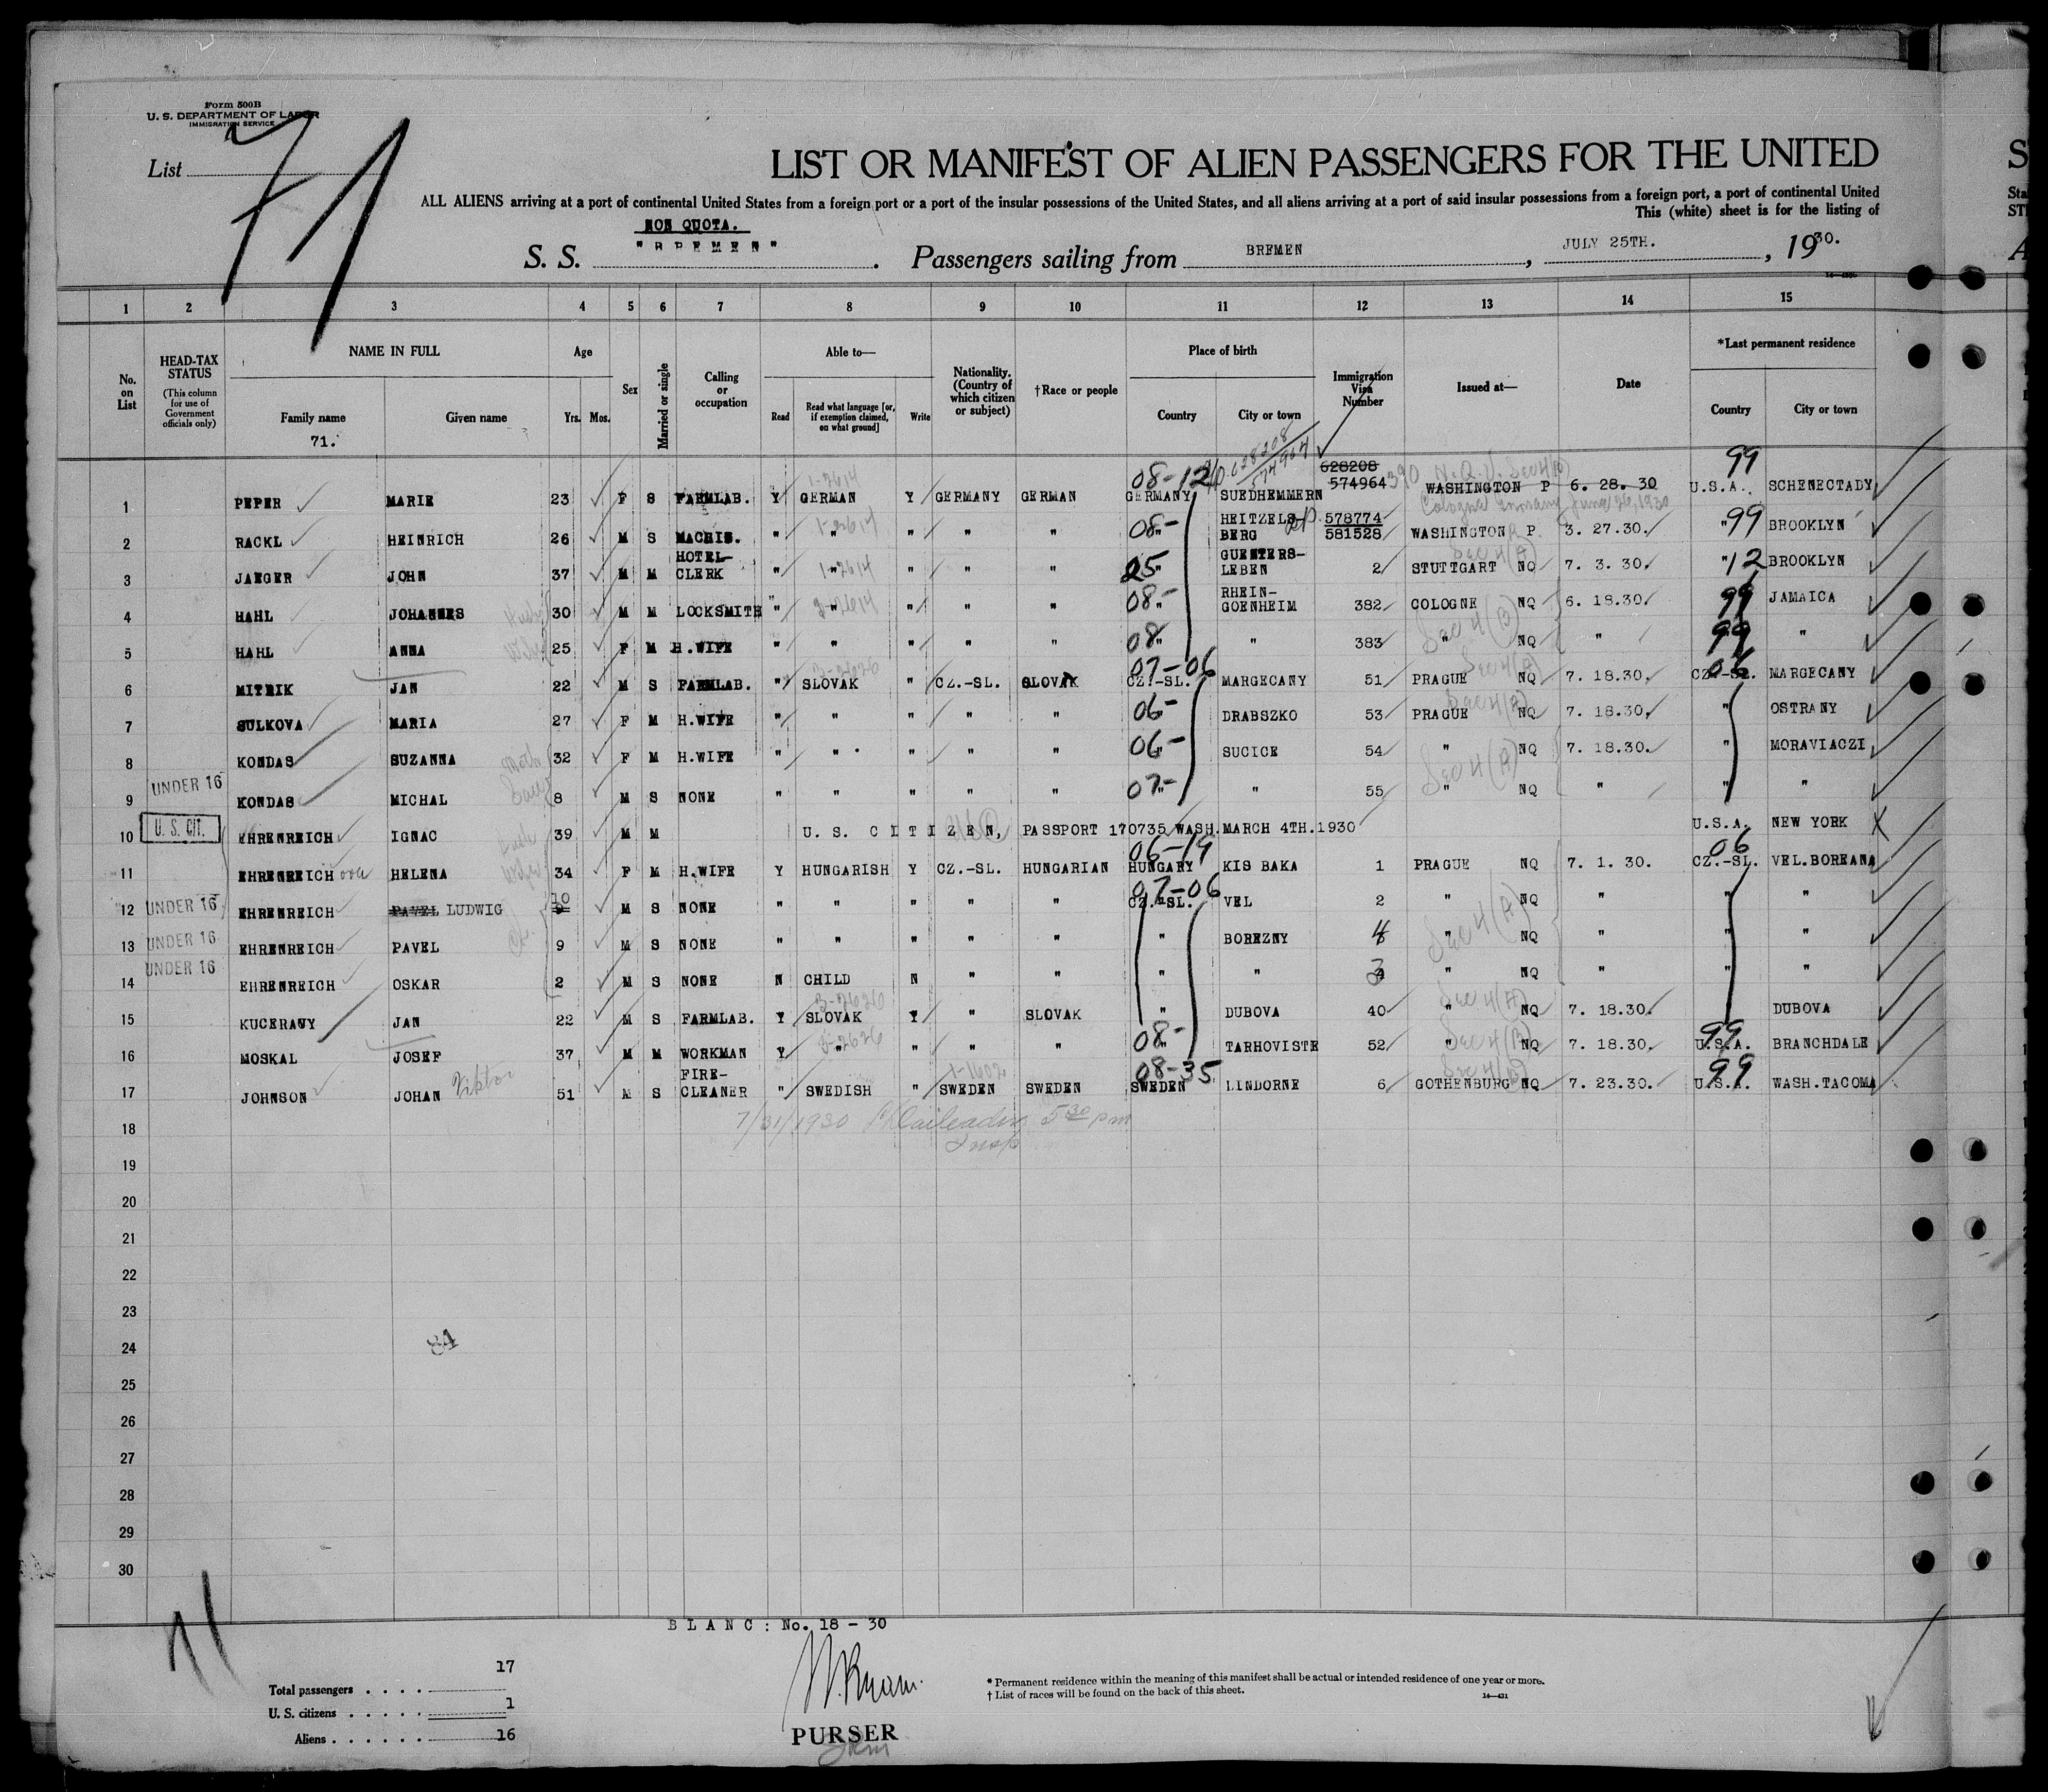 Form 500B
U. S. DEPARTMENT OF LABOR
IMMIGRATION SERVICE
List 71
LIST OR MANIFEST OF ALIEN PASSENGERS FOR THE UNITED
ALL ALIENS arriving at a port of continental United States from a foreign port or a port of the insular possessions of the United States, and all aliens arriving at a port of said insular possessions from a foreign port, a port of continental United
This (white) sheet is for the listing of
NON QUOTA.
S. S. "BREMEN". Passengers sailing from BREMEN, JULY 25TH., 1930.
1 2 3 4 5 6 7 8 9 10 11 12 13 14 15
No. on List
HEAD-TAX STATUS
(This column for use of Government officials only)
NAME IN FULL
Family name
71.
Given name
Age
Yrs. Mos.
Sex
Married or single
Calling or occupation
Able to—
Read
Read what language [or, if exemption claimed, on what ground]
Write
Nationality. (Country of which citizen or subject)
†Race or people
Place of birth
Country
City or town
Immigration Visa Number
Issued at—
Date
*Last permanent residence
Country
City or town
08-12 628208 574964 628208 99
1 PEPER MARIE 23 F S FARMLAB. Y GERMAN Y GERMANY GERMAN GERMANY SUEDHEMMERN 574964 390 WASHINGTON P 6. 28. 30 U.S.A. SCHENECTADY
Cologne Germany June 26, 1930
2 RACKL HEINRICH 26 M S MACHIS. " " " " " 08- " HEITZELSBERG 578774 581528 WASHINGTON P. 3. 27.30. " 99 BROOKLYN
3 JAEGER JOHN 37 M M HOTEL-CLERK " " " " " 25 " GUENTERS-LEBEN 2 STUTTGART NQ 7. 3. 30. " 12 BROOKLYN
4 HAHL JOHANNES 30 M M LOCKSMITH " " " " " 08- " RHEIN-GOENHEIM 382 COLOGNE NQ 6. 18.30. 99 JAMAICA
5 HAHL ANNA 25 F M H.WIFE " " " " " 08 " " 383 " NQ " 99 "
07-06 06
6 MITRIK JAN 22 M S FARMLAB. " SLOVAK " CZ.-SL. SLOVAK CZ.-SL. MARGECANY 51 PRAGUE NQ 7. 18.30. CZ.-SL. MARGECANY
7 SULKOVA MARIA 27 F M H.WIFE " " " " " 06- DRABSZKO 53 PRAGUE NQ 7. 18.30. " OSTRANY
8 KONDAS SUZANNA 32 F M H.WIFE " " " " " 06- " SUCICE 54 " NQ 7. 18.30. " MORAVIACZI
UNDER 16
9 KONDAS MICHAL 8 M S NONE " " " " " 07- " " 55 " NQ " " "
10 U. S. CIT. EHRENREICH IGNAC 39 M M U. S. CITIZEN, PASSPORT 170735 WASH. MARCH 4TH.1930 U.S.A. NEW YORK
06-19 06
11 EHRENREICH ova HELENA 34 F M H.WIFE Y HUNGARISH Y CZ.-SL. HUNGARIAN HUNGARY KIS BAKA 1 PRAGUE NQ 7. 1. 30. CZ.-SL. VEL.BOREANA
07-06
12 UNDER 16 EHRENREICH PAVEL LUDWIG 10 9 M S NONE " " " " " CZ.-SL. VEL 2 " NQ " " "
13 UNDER 16 EHRENREICH PAVEL 9 M S NONE " " " " " " BOREZNY 4 " NQ " " "
14 UNDER 16 EHRENREICH OSKAR 2 M S NONE N CHILD N " " " " 3 " NQ " " "
15 KUCERAVY JAN 22 M S FARMLAB. Y SLOVAK Y " SLOVAK " DUBOVA 40 " NQ 7. 18.30. DUBOVA
16 MOSKAL JOSEF 37 M M WORKMAN Y " " " " 08- " TARHOVISTE 52 " NQ 7. 18.30. 99 U.S.A. BRANCHDALE
08-35 99
17 JOHNSON JOHAN Viktor 51 M S FIRE-CLEANER " SWEDISH " SWEDEN SWEDEN SWEDEN LINDORNE 6 GOTHENBURG NQ 7. 23.30. U.S.A. WASH.TACOMA
7/31/1930 5 30 pm
Insp
18
19
20
21
22
23
24
84
25
26
27
28
29
30
BLANC: No. 18 - 30
71
Total passengers . . . . 17
U. S. citizens . . . . . 1
Aliens . . . . . . 16
PURSER
* Permanent residence within the meaning of this manifest shall be actual or intended residence of one year or more.
† List of races will be found on the back of this sheet.
14—431